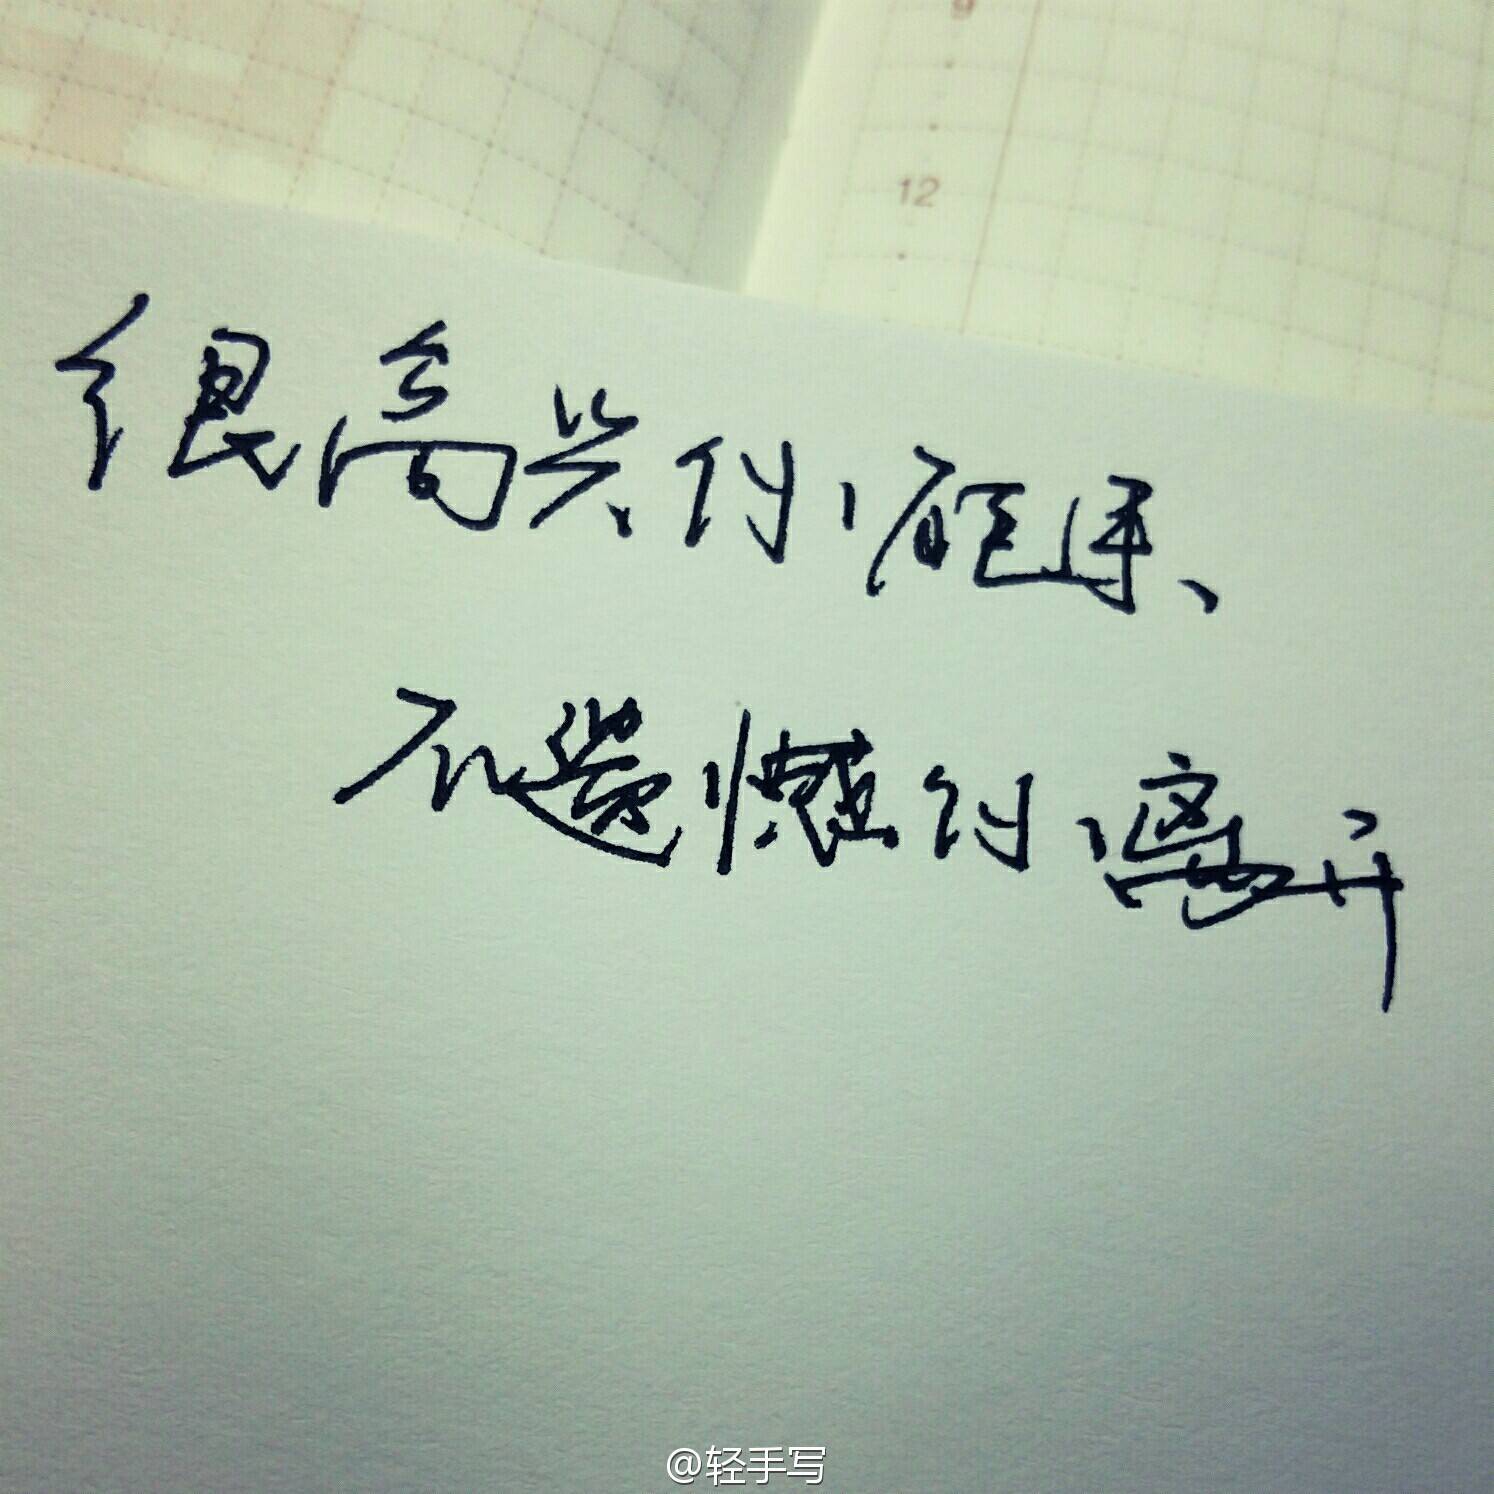 9
12
很高兴你能来、
不遗憾你离开
@轻手写